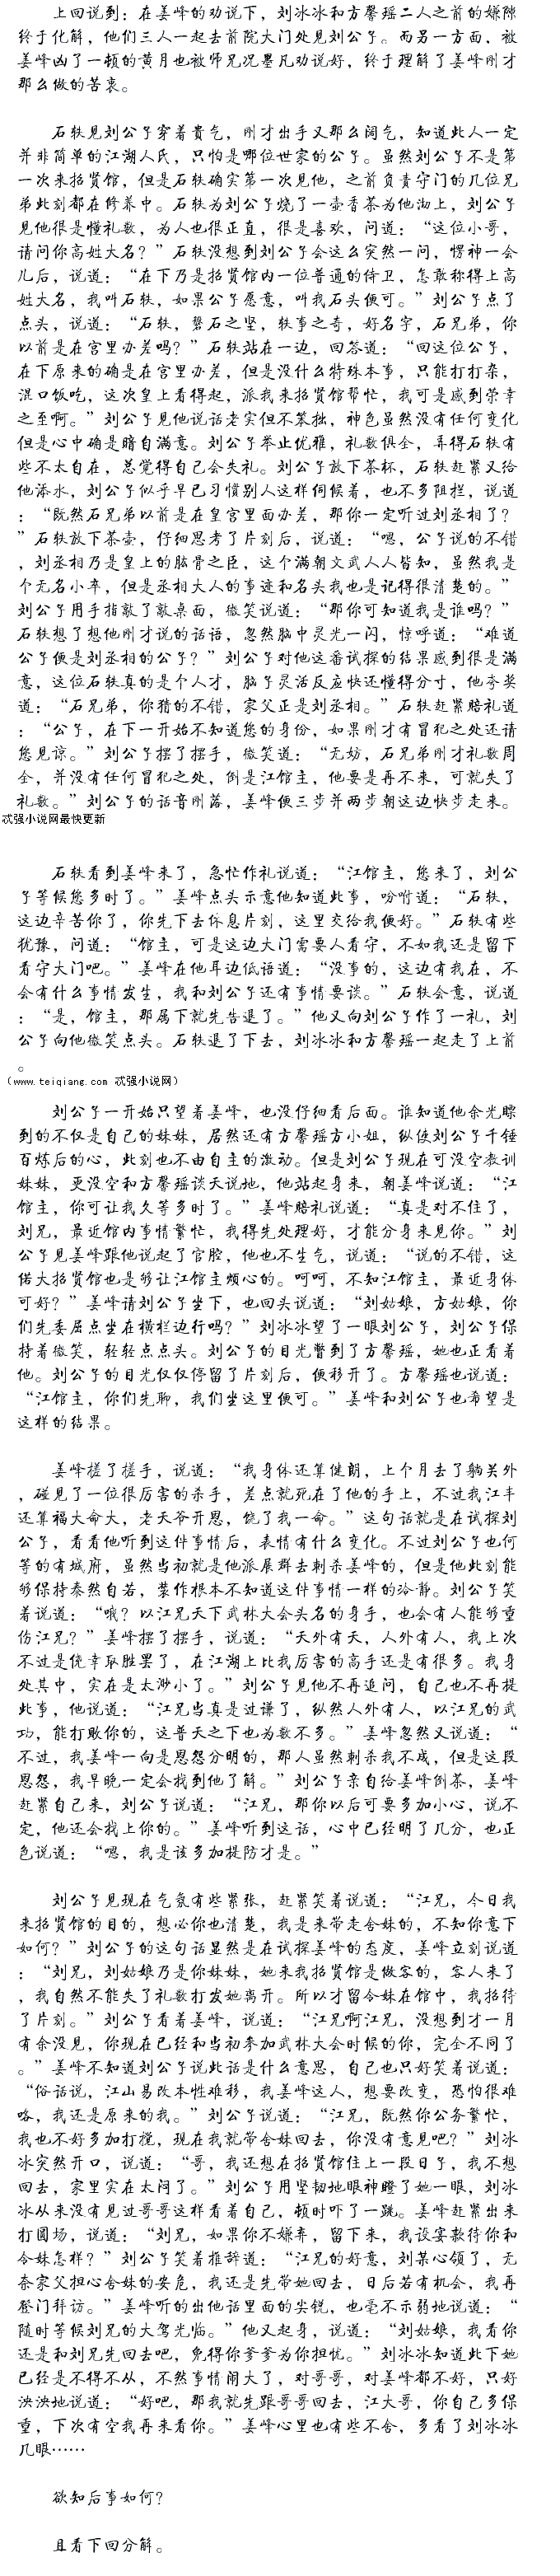 上回说到：在姜峰的劝说下，刘冰冰和方馨瑶二人之前的嫌隙
终于化解，他们三人一起去前院大门处见刘公子。而另一方面，被
姜峰凶了一顿的黄月也被师兄况墨凡劝说好，终于理解了姜峰刚才
那么做的苦衷。
石轶见刘公子穿着贵气，刚才出手又那么阔气，知道此人一定
并非简单的江湖人氏，只怕是哪位世家的公子。虽然刘公子不是第
一次来招贤馆，但是石轶确实第一次见他，之前负责守门的几位兄
弟此刻都在修养中。石轶为刘公子烧了一壶香茶为他沏上，刘公子
见他很是懂礼数，为人也很正直，很是喜欢，问道：“这位小哥，
请问你高姓大名？”石轶没想到刘公子会这么突然一问，愣神一会
儿后，说道：“在下乃是招贤馆内一位普通的侍卫，怎敢称得上高
姓大名，我叫石轶，如果公子愿意，叫我石头便可。”刘公子点了
点头，说道：“石轶，磐石之坚，轶事之奇，好名字，石兄弟，你
以前是在宫里办差吗？”石轶站在一边，回答道：“回这位公子，
在下原来的确是在宫里办差，但是没什么特殊本事，只能打打杂，
混口饭吃，这次皇上看得起，派我来招贤馆帮忙，我可是感到荣幸
之至啊。”刘公子见他说话老实但不笨拙，神色虽然没有任何变化
但是心中确是暗自满意。刘公子举止优雅，礼数俱全，弄得石轶有
些不太自在，总觉得自己会失礼。刘公子放下茶杯，石轶赶紧又给
他添水，刘公子似乎早已习惯别人这样伺候着，也不多阻拦，说道
：“既然石兄弟以前是在皇宫里面办差，那你一定听过刘丞相了？
”石轶放下茶壶，仔细思考了片刻后，说道：“嗯，公子说的不错
，刘丞相乃是皇上的肱骨之臣，这个满朝文武人人皆知，虽然我是
个无名小卒，但是丞相大人的事迹和名头我也是记得很清楚的。”
刘公子用手指敲了敲桌面，微笑说道：“那你可知道我是谁吗？”
石轶想了想他刚才说的话语，忽然脑中灵光一闪，惊呼道：“难道
公子便是刘丞相的公子？”刘公子对他这番试探的结果感到很是满
意，这位石轶真的是个人才，脑子灵活反应快还懂得分寸，他夸奖
道：“石兄弟，你猜的不错，家父正是刘丞相。”石轶赶紧赔礼道
：“公子，在下一开始不知道您的身份，如果刚才有冒犯之处还请
您见谅。”刘公子摆了摆手，微笑道：“无妨，石兄弟刚才礼数周
全，并没有任何冒犯之处，倒是江馆主，他要是再不来，可就失了
礼数。”刘公子的话音刚落，姜峰便三步并两步朝这边快步走来。
忒强小说网最快更新
石轶看到姜峰来了，急忙作礼说道：“江馆主，您来了，刘公
子等候您多时了。”姜峰点头示意他知道此事，吩咐道：“石轶，
这边辛苦你了，你先下去休息片刻，这里交给我便好。”石轶有些
犹豫，问道：“馆主，可是这边大门需要人看守，不如我还是留下
看守大门吧。”姜峰在他耳边低语道：“没事的，这边有我在，不
会有什么事情发生，我和刘公子还有事情要谈。”石轶会意，说道
：“是，馆主，那属下就先告退了。”他又向刘公子作了一礼，刘
公子向他微笑点头。石轶退了下去，刘冰冰和方馨瑶一起走了上前
。
（www.teiqiang.com 忒强小说网）
刘公子一开始只望着姜峰，也没仔细看后面。谁知道他余光瞟
到的不仅是自己的妹妹，居然还有方馨瑶方小姐，纵使刘公子千锤
百炼后的心，此刻也不由自主的激动。但是刘公子现在可没空教训
妹妹，更没空和方馨瑶谈天说地，他站起身来，朝姜峰说道：“江
馆主，你可让我久等多时了。”姜峰赔礼说道：“真是对不住了，
刘兄，最近馆内事情繁忙，我得先处理好，才能分身来见你。”刘
公子见姜峰跟他说起了官腔，他也不生气，说道：“说的不错，这
偌大招贤馆也是够让江馆主烦心的。呵呵，不知江馆主，最近身体
可好？”姜峰请刘公子坐下，也回头说道：“刘姑娘，方姑娘，你
们先委屈点坐在横栏边行吗？”刘冰冰望了一眼刘公子，刘公子保
持着微笑，轻轻点点头。刘公子的目光瞥到了方馨瑶，她也正看着
他。刘公子的目光仅仅停留了片刻后，便移开了。方馨瑶也说道：
“江馆主，你们先聊，我们坐这里便可。”姜峰和刘公子也希望是
这样的结果。
姜峰搓了搓手，说道：“我身体还算健朗，上个月去了躺关外
，碰见了一位很厉害的杀手，差点就死在了他的手上，不过我江丰
还算福大命大，老天爷开恩，饶了我一命。”这句话就是在试探刘
公子，看看他听到这件事情后，表情有什么变化。不过刘公子也何
等的有城府，虽然当初就是他派展群去刺杀姜峰的，但是他此刻能
够保持泰然自若，装作根本不知道这件事情一样的冷静。刘公子笑
着说道：“哦？以江兄天下武林大会头名的身手，也会有人能够重
伤江兄？”姜峰摆了摆手，说道：“天外有天，人外有人，我上次
不过是侥幸取胜罢了，在江湖上比我厉害的高手还是有很多。我身
处其中，实在是太渺小了。”刘公子见他不再追问，自己也不再提
此事，他说道：“江兄当真是过谦了，纵然人外有人，以江兄的武
功，能打败你的，这普天之下也为数不多。”姜峰忽然又说道：“
不过，我姜峰一向是恩怨分明的，那人虽然刺杀我不成，但是这段
恩怨，我早晚一定会找到他了解。”刘公子亲自给姜峰倒茶，姜峰
赶紧自己来，刘公子说道：“江兄，那你以后可要多加小心，说不
定，他还会找上你的。”姜峰听到这话，心中已经明了几分，也正
色说道：“嗯，我是该多加提防才是。”
刘公子见现在气氛有些紧张，赶紧笑着说道：“江兄，今日我
来招贤馆的目的，想必你也清楚，我是来带走舍妹的，不知你意下
如何？”刘公子的这句话显然是在试探姜峰的态度，姜峰立刻说道
：“刘兄，刘姑娘乃是你妹妹，她来我招贤馆是做客的，客人来了
，我自然不能失了礼数打发她离开。所以才留令妹在馆中，我招待
了片刻。”刘公子看着姜峰，说道：“江兄啊江兄，没想到才一月
有余没见，你现在已经和当初参加武林大会时候的你，完全不同了
。”姜峰不知道刘公子说此话是什么意思，自己也只好笑着说道：
“俗话说，江山易改本性难移，我姜峰这人，想要改变，恐怕很难
咯，我还是原来的我。”刘公子说道：“江兄，既然你公务繁忙，
我也不好多加打搅，现在我就带舍妹回去，你没有意见吧？”刘冰
冰突然开口，说道：“哥，我还想在招贤馆住上一段日子，我不想
回去，家里实在太闷了。”刘公子用坚韧地眼神瞪了她一眼，刘冰
冰从来没有见过哥哥这样看着自己，顿时吓了一跳。姜峰赶紧出来
打圆场，说道：“刘兄，如果你不嫌弃，留下来，我设宴款待你和
令妹怎样？”刘公子笑着推辞道：“江兄的好意，刘某心领了，无
奈家父担心舍妹的安危，我还是先带她回去，日后若有机会，我再
登门拜访。”姜峰听的出他话里面的尖锐，也毫不示弱地说道：“
随时等候刘兄的大驾光临。”他又起身，说道：“刘姑娘，我看你
还是和刘兄先回去吧，免得你爹爹为你担忧。”刘冰冰知道此下她
已经是不得不从，不然事情闹大了，对哥哥，对姜峰都不好，只好
泱泱地说道：“好吧，那我就先跟哥哥回去，江大哥，你自己多保
重，下次有空我再来看你。”姜峰心里也有些不舍，多看了刘冰冰
几眼……
欲知后事如何？
且看下回分解。